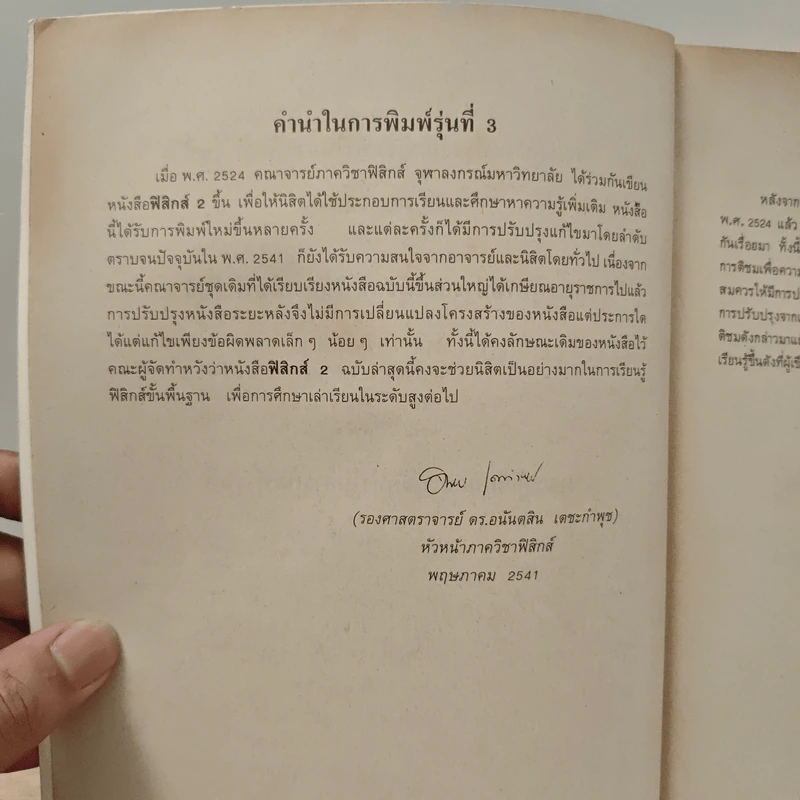 คำนำในการพิมพ์รุ่นที่ 3
เมื่อ พ.ศ. 2524 คณาจารย์ภาควิชาฟิสิกส์ จุฬาลงกรณ์มหาวิทยาลัย ได้ร่วมกันเขียน
หนังสือฟิสิกส์ 2 ขึ้น เพื่อให้นิสิตได้ใช้ประกอบการเรียนและศึกษาหาความรู้เพิ่มเติม หนังสือ
นี้ได้รับการพิมพ์ใหม่ขึ้นหลายครั้ง และแต่ละครั้งก็ได้มีการปรับปรุงแก้ไขมาโดยลำดับ
ตราบจนปัจจุบันใน พ.ศ. 2541 ก็ยังได้รับความสนใจจากอาจารย์และนิสิตโดยทั่วไป เนื่องจาก
ขณะนี้คณาจารย์ชุดเดิมที่ได้เรียบเรียงหนังสือฉบับนี้ขึ้นส่วนใหญ่ได้เกษียณอายุราชการไปแล้ว
การปรับปรุงหนังสือระยะหลังจึงไม่มีการเปลี่ยนแปลงโครงสร้างของหนังสือแต่ประการใด
ได้แต่แก้ไขเพียงข้อผิดพลาดเล็ก ๆ น้อย ๆ เท่านั้น ทั้งนี้ได้คงลักษณะเดิมของหนังสือไว้
คณะผู้จัดทำหวังว่าหนังสือฟิสิกส์ 2 ฉบับล่าสุดนี้คงจะช่วยนิสิตเป็นอย่างมากในการเรียนรู้
ฟิสิกส์ขั้นพื้นฐาน เพื่อการศึกษาเล่าเรียนในระดับสูงต่อไป
(รองศาสตราจารย์ ดร.อนันตสิน เตชะกำพุช)
หัวหน้าภาควิชาฟิสิกส์
พฤษภาคม 2541
หลังจาก
พ.ศ. 2524 แล้ว
กันเรื่อยมา ทั้งนี้
การติชมเพื่อความ
สมควรให้มีการป
การปรับปรุงจากเ
ติชมดังกล่าวมาแ
เรียนรู้ขึ้นดังที่ผู้เขี